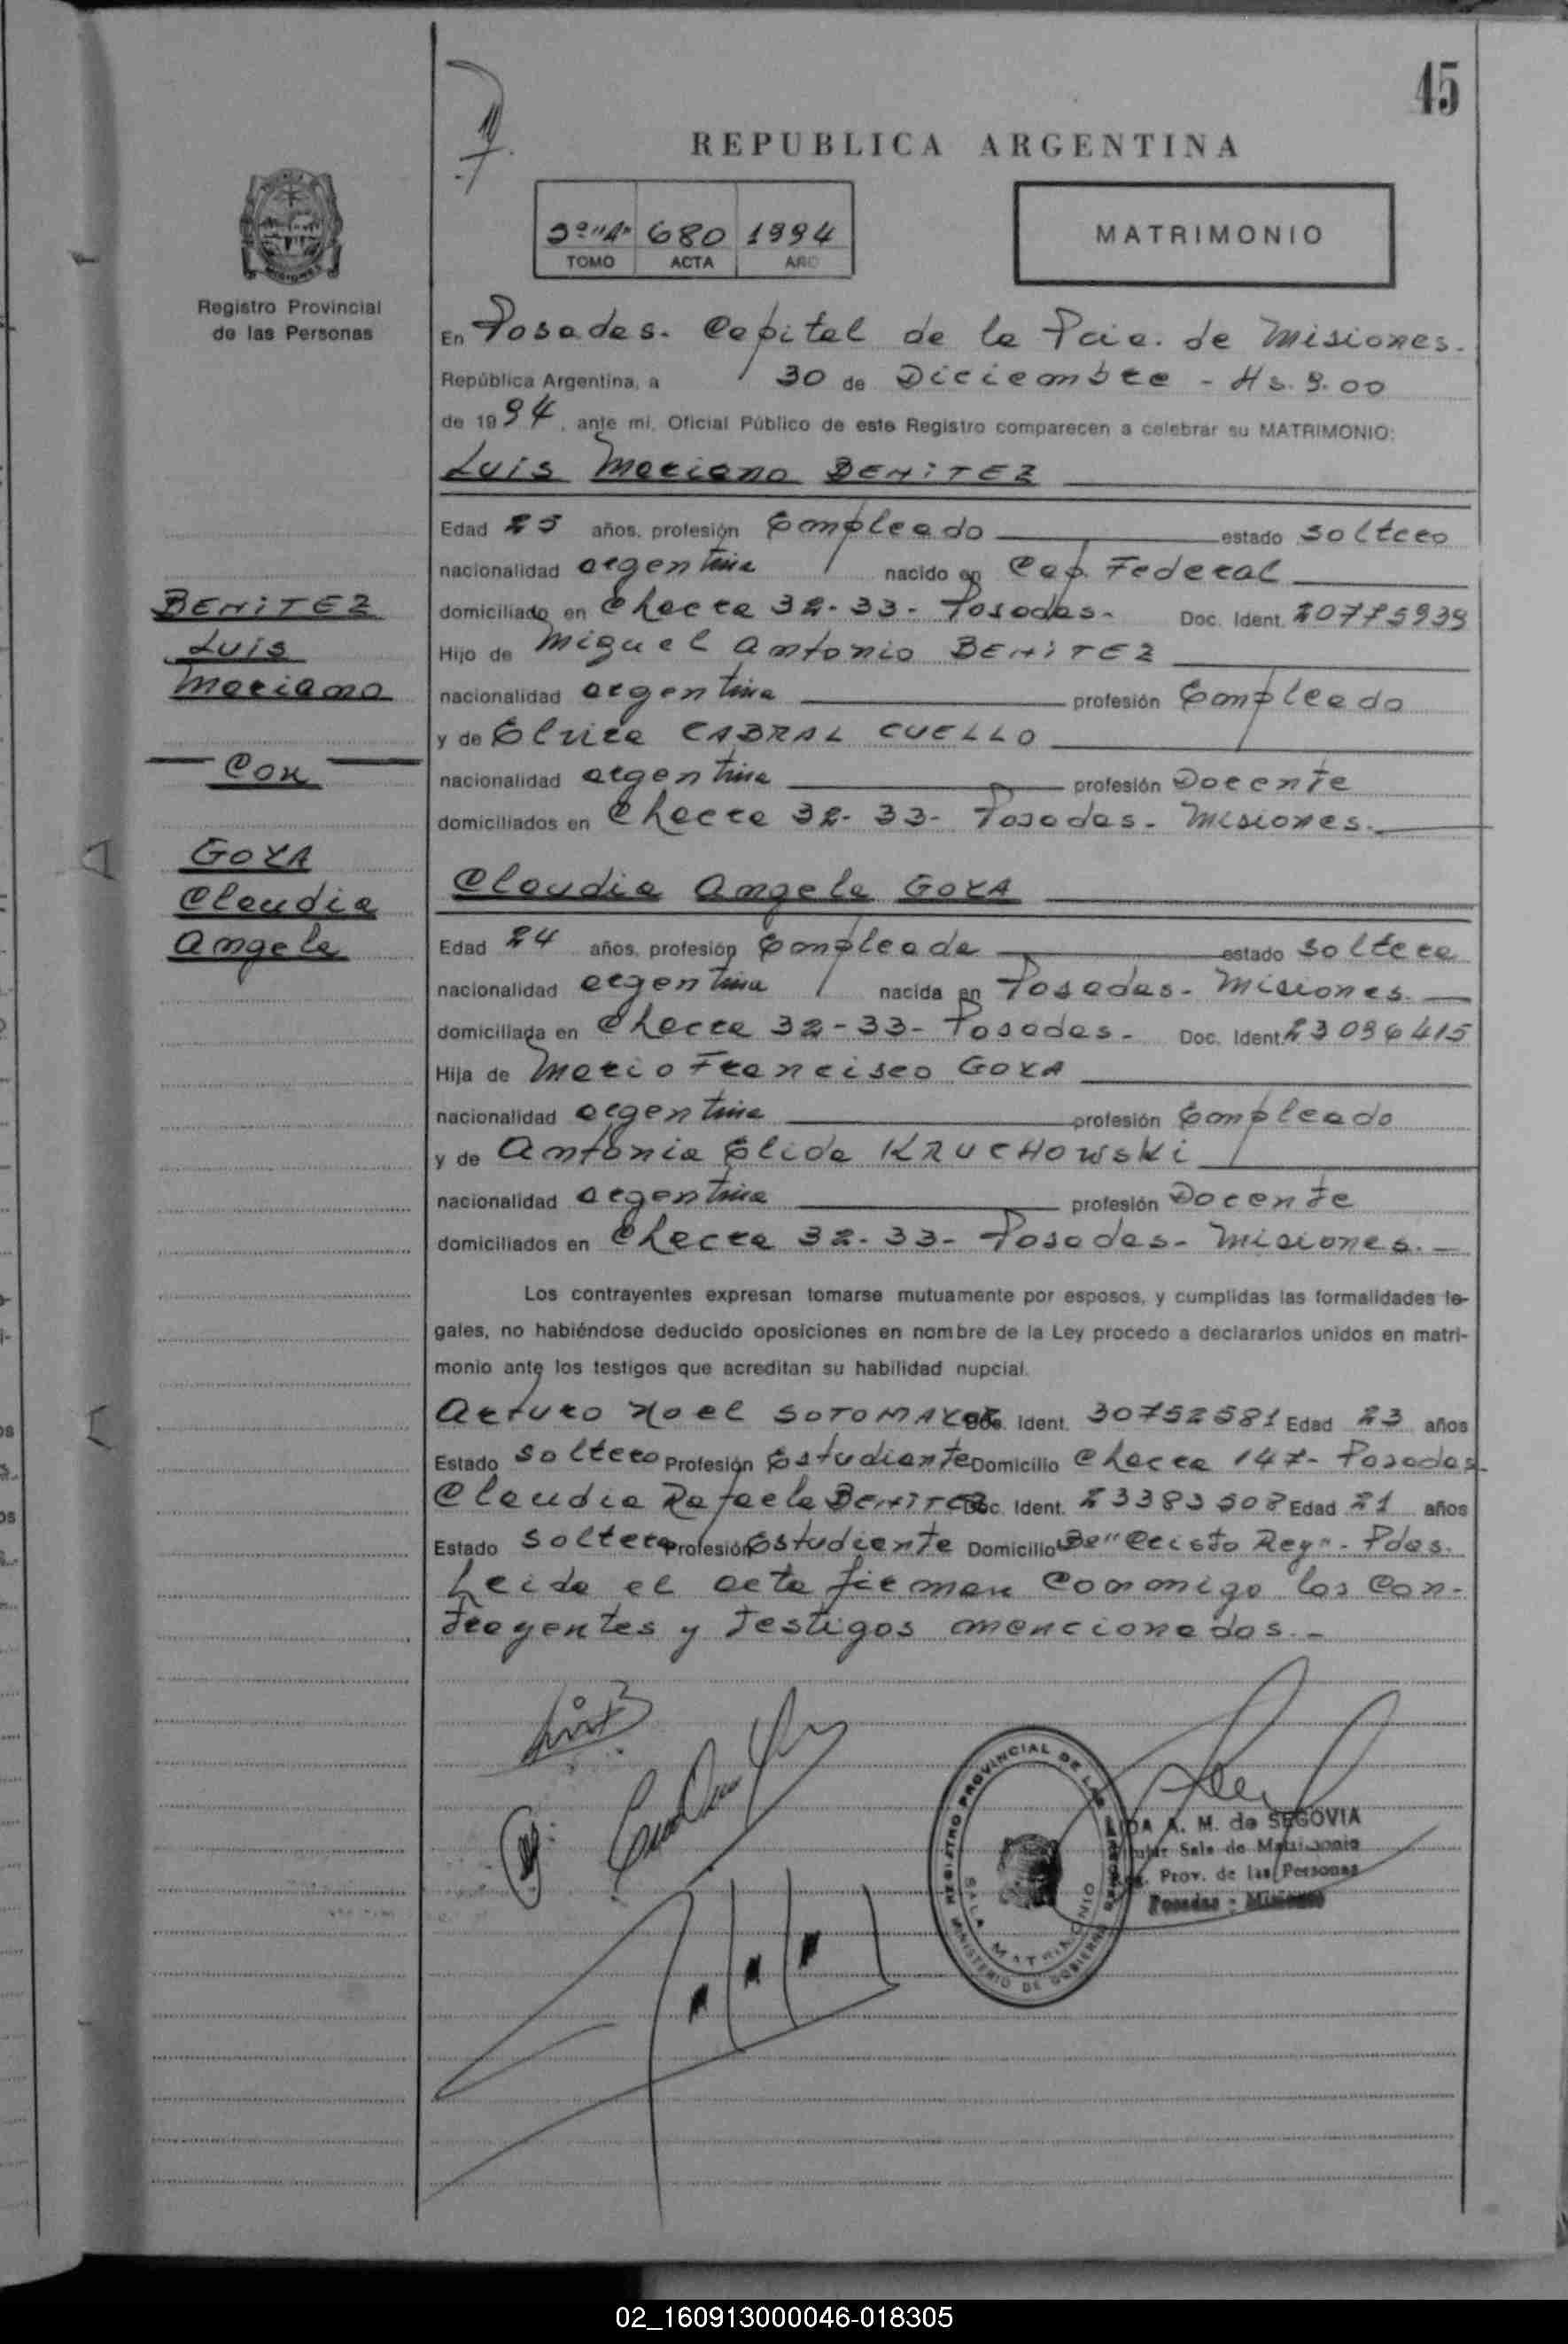 45
REPUBLICA ARGENTINA
2º "A" 680 1994
TOMO ACTA AÑO
MATRIMONIO
Registro Provincial
de las Personas
En Posadas. Capital de la Pcia. de Misiones.
República Argentina, a 30 de Diciembre - Hs. 9.00
de 1994, ante mi, Oficial Público de este Registro comparecen a celebrar su MATRIMONIO:
Luis Mariano BENITEZ
Edad 25 años, profesión Empleado estado soltero
nacionalidad argentina nacido en Cap. Federal
domiciliado en Chacra 32-33- Posadas- Doc. Ident. 20775939
Hijo de Miguel Antonio BENITEZ
nacionalidad argentina profesión Empleado
y de Elvira CABRAL CUELLO
nacionalidad argentina profesión Docente
domiciliados en Chacra 32-33- Posadas- Misiones.
BENITEZ
Luis
Mariano
Con
GOYA
Claudia
Angela
Claudia Angela GOYA
Edad 24 años, profesión Empleada estado soltera
nacionalidad argentina nacida en Posadas- Misiones.
domiciliada en Chacra 32-33- Posadas- Doc. Ident. 23096415
Hija de Mario Francisco GOYA
nacionalidad argentina profesión Empleado
y de Antonia Elida KRUCHOWSKI
nacionalidad argentina profesión Docente
domiciliados en Chacra 32-33- Posadas- Misiones.-
Los contrayentes expresan tomarse mutuamente por esposos, y cumplidas las formalidades le-
gales, no habiéndose deducido oposiciones en nombre de la Ley procedo a declararlos unidos en matri-
monio ante los testigos que acreditan su habilidad nupcial.
Arturo Noel SOTOMAYOR Doc. Ident. 30752581 Edad 23 años
Estado soltero Profesión Estudiante Domicilio Chacra 147- Posadas-
Claudia Rafaela BENITEZ Doc. Ident. 23383508 Edad 21 años
Estado soltera Profesión Estudiante Domicilio Bº "Cristo Rey"- Pdas.
Leida el acta firman conmigo los con-
trayentes y testigos mencionados.-
REGISTRO PROVINCIAL DE LAS PERSONAS
SALA MATRIMONIO
MINISTERIO DE GOBIERNO
A. M. de SEGOVIA
Sala de Matrimonio
Prov. de las Personas
Posadas - Misiones
02_160913000046-018305